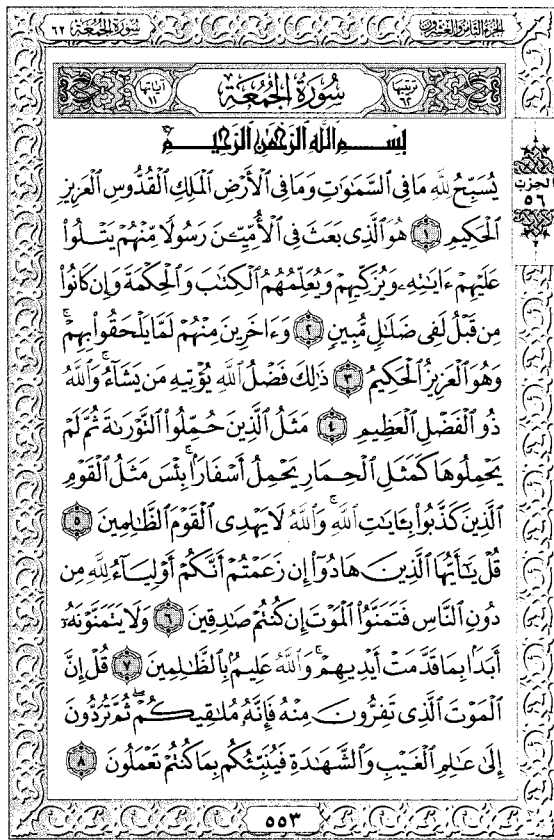 الجزء الثامن والعشرون
سورة الجمعة ٦٢
ترتيبها ٦٢
سُورَةُ الجُمُعَةِ
آياتها ١١
بِسْمِ اللَّهِ الرَّحْمَٰنِ الرَّحِيمِ
يُسَبِّحُ لِلَّهِ مَا فِي السَّمَٰوَٰتِ وَمَا فِي الْأَرْضِ الْمَلِكِ الْقُدُّوسِ الْعَزِيزِ
الْحَكِيمِ ١ هُوَ الَّذِي بَعَثَ فِي الْأُمِّيِّـۧنَ رَسُولًا مِّنْهُمْ يَتْلُوا۟
عَلَيْهِمْ ءَايَٰتِهِۦ وَيُزَكِّيهِمْ وَيُعَلِّمُهُمُ الْكِتَٰبَ وَالْحِكْمَةَ وَإِن كَانُوا۟
مِن قَبْلُ لَفِي ضَلَٰلٍ مُّبِينٍ ٢ وَءَاخَرِينَ مِنْهُمْ لَمَّا يَلْحَقُوا۟ بِهِمْ ۚ
وَهُوَ الْعَزِيزُ الْحَكِيمُ ٣ ذَٰلِكَ فَضْلُ اللَّهِ يُؤْتِيهِ مَن يَشَآءُ ۚ وَاللَّهُ
ذُو الْفَضْلِ الْعَظِيمِ ٤ مَثَلُ الَّذِينَ حُمِّلُوا۟ التَّوْرَىٰةَ ثُمَّ لَمْ
يَحْمِلُوهَا كَمَثَلِ الْحِمَارِ يَحْمِلُ أَسْفَارًۢا ۚ بِئْسَ مَثَلُ الْقَوْمِ
الَّذِينَ كَذَّبُوا۟ بِـَٔايَٰتِ اللَّهِ ۚ وَاللَّهُ لَا يَهْدِي الْقَوْمَ الظَّٰلِمِينَ ٥
قُلْ يَٰٓأَيُّهَا الَّذِينَ هَادُوٓا۟ إِن زَعَمْتُمْ أَنَّكُمْ أَوْلِيَآءُ لِلَّهِ مِن
دُونِ النَّاسِ فَتَمَنَّوُا۟ الْمَوْتَ إِن كُنتُمْ صَٰدِقِينَ ٦ وَلَا يَتَمَنَّوْنَهُۥٓ
أَبَدًۢا بِمَا قَدَّمَتْ أَيْدِيهِمْ ۚ وَاللَّهُ عَلِيمٌۢ بِالظَّٰلِمِينَ ٧ قُلْ إِنَّ
الْمَوْتَ الَّذِي تَفِرُّونَ مِنْهُ فَإِنَّهُۥ مُلَٰقِيكُمْ ۖ ثُمَّ تُرَدُّونَ
إِلَىٰ عَٰلِمِ الْغَيْبِ وَالشَّهَٰدَةِ فَيُنَبِّئُكُم بِمَا كُنتُمْ تَعْمَلُونَ ٨
الحزب
٥٦
٥٥٣